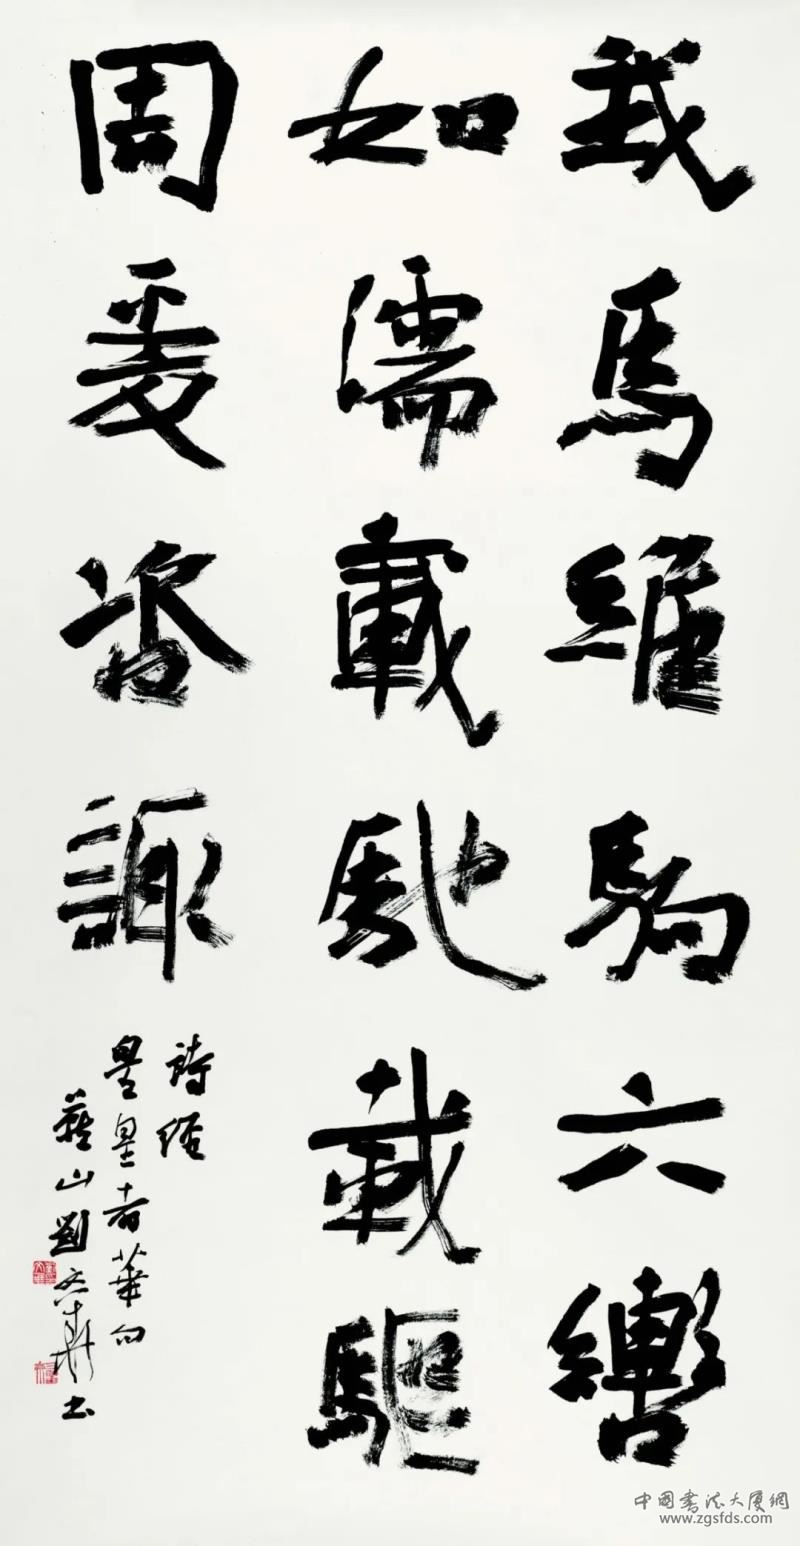 我馬維駒六轡
如濡載馳載驅
周爰咨諏
詩經
皇皇者華句
山劉書
中国书法大厦網
www.zgsfds.com